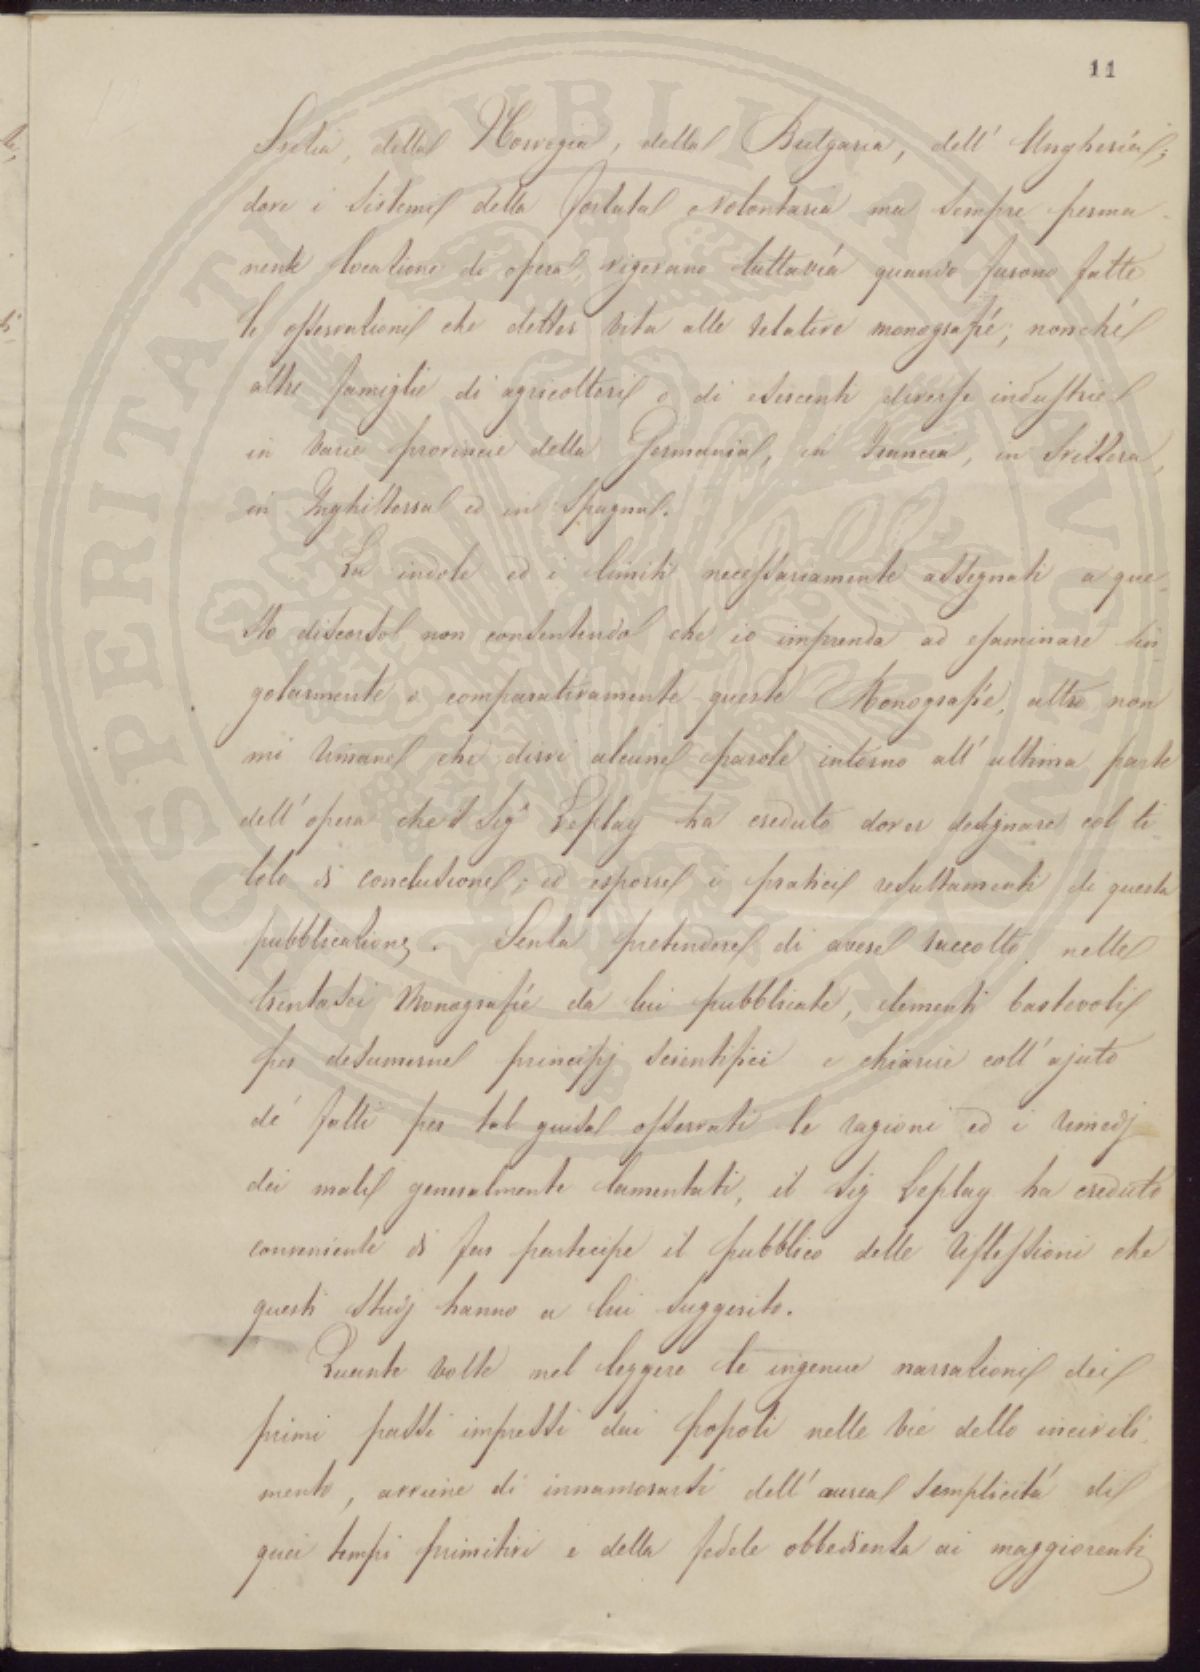 11
Svezia, della Norvegia, della Bulgaria, dell' Ungheria;
dove i sistemi della forzata o volontaria ma sempre perma-
nente locazione di opera, vigevano tuttavia quando furono fatte
le osservazioni che detter vita alle relative monografie; nonché
altre famiglie di agricoltori o di esercenti diverse industrie
in varie provincie della Germania, in Francia, in Svizzera,
in Inghilterra ed in Spagna.
La indole ed i limiti necessariamente assegnati a que-
sto discorso non consentendo che io imprenda ad esaminare sin-
golarmente o comparativamente queste Monografie, altro non
mi rimane che dirvi alcune parole intorno all' ultima parte
dell' opera che il Sig.r Leplay ha creduto dover designare col ti-
tolo di conclusione; ed esporre i pratici resultamenti di questa
pubblicazione. Senza pretendere di avere raccolto nelle
trentasei Monografie da lui pubblicate, elementi bastevoli
per desumerne principj scientifici e chiarire coll' ajuto
de' fatti per tal guisa osservati le ragioni ed i rimedj
dei mali generalmente lamentati, il Sig Leplay ha creduto
conveniente di far partecipe il pubblico delle riflessioni che
questi studj hanno a lui suggerito.
Quante volte nel leggere le ingenue narrazioni dei
primi passi impressi dai popoli nelle vie dello incivili-
mento, avviene di innamorarsi dell' aurea semplicità di
quei tempi primitivi e della fedele obbedienza ai maggiorenti
PUBLICAE
PROSPERITATI